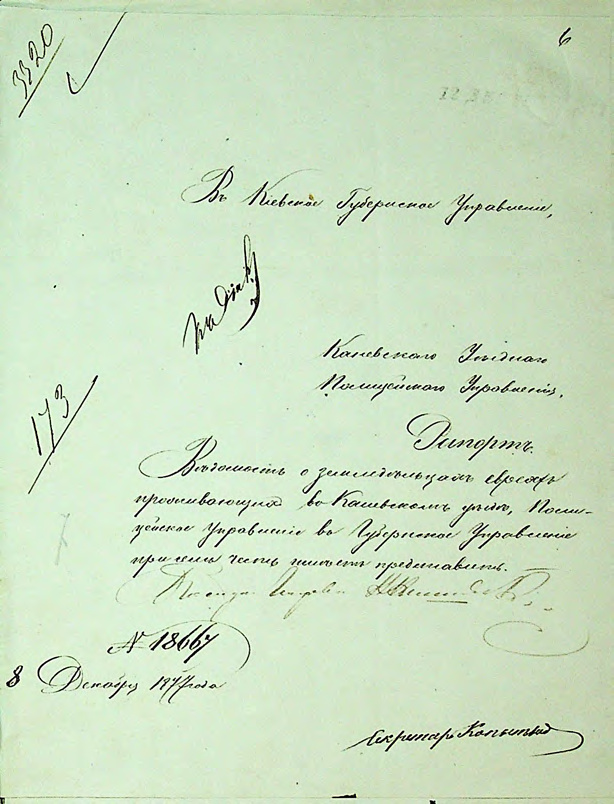 3320
6
Въ Кіевское Губернское Управленіе,
Каневского Уѣзднаго
Полицейского Управленія,
Рапортъ.
Вѣдомость о земледѣльцахъ евреяхъ
проживающихъ во Каневскомъ уѣздѣ, Поли-
цейское Управленіе во Губернское Управленіе
при семъ честь имѣетъ представить.
173
N 18667
8 Декабря 1877 года
Секретарь